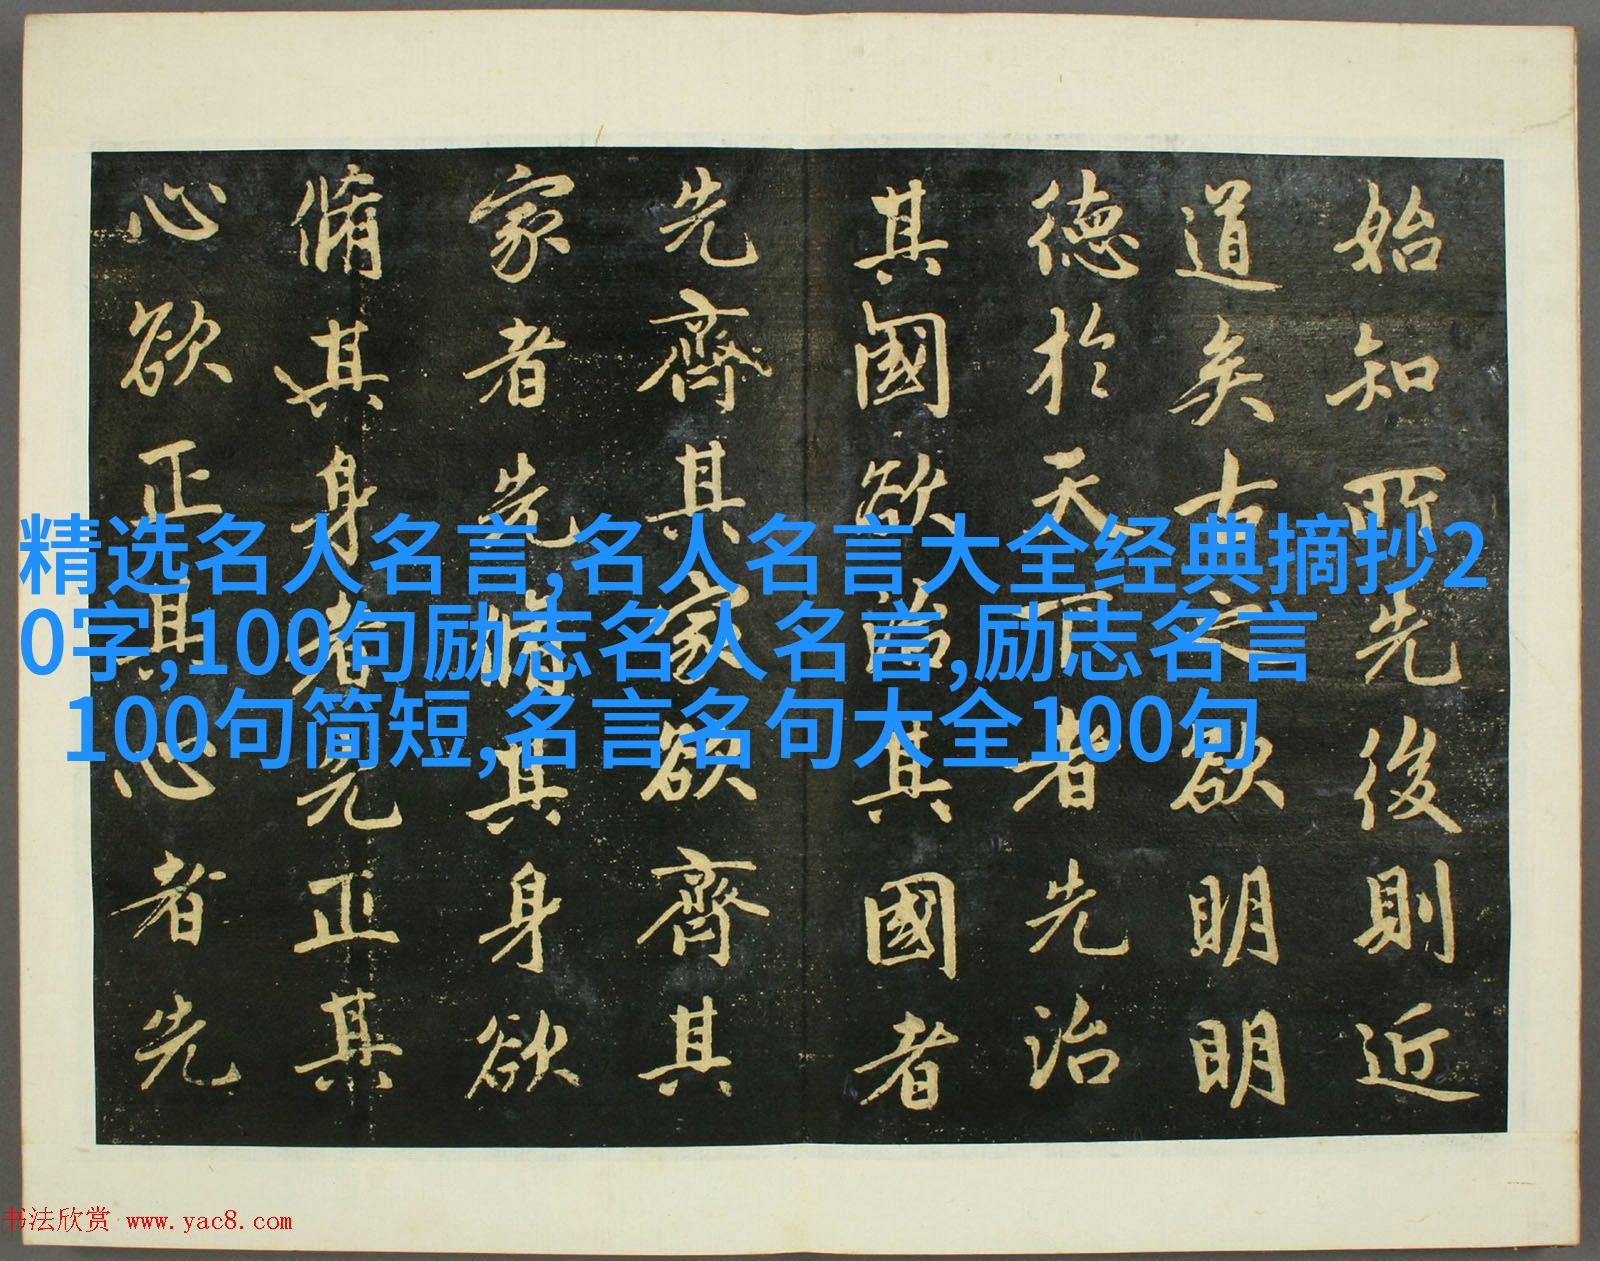 始知所先後則近
道矣古之欲明明
德於天下者先治
其國欲治其國者
先齊其家欲齊其
家者先脩其身欲
脩其身者先正其
心欲正其心者先
精选名人名言,名人名言大全经典摘抄2
0字,100句励志名人名言,励志名言
100句简短,名言名句大全100句
书法欣赏 www.yac8.com